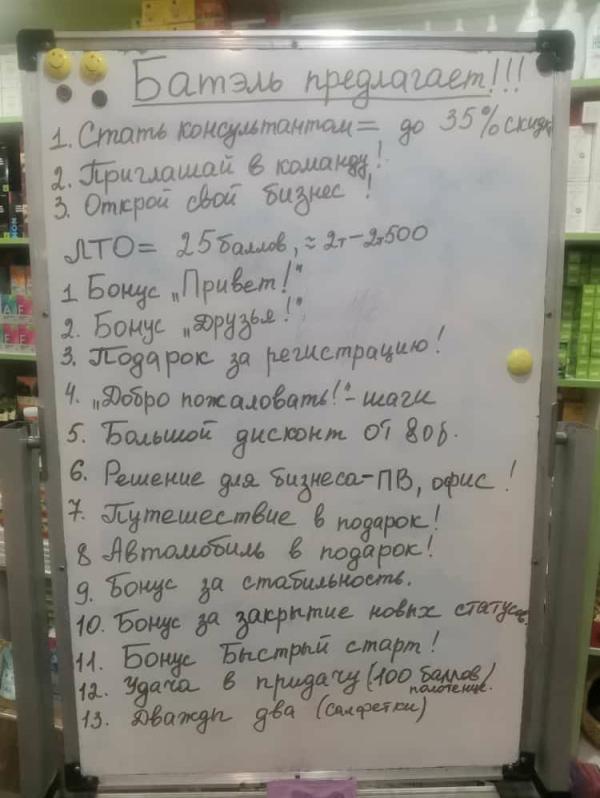 Батэль предлагает!!!
1. Стать консультантом = до 35% скидк
2. Приглашай в команду!
3. Открой свой бизнес!
ЛТО = 25 баллов, ≈ 2т-2т500
1 Бонус „Привет!“
2. Бонус „Друзья!“
3. Подарок за регистрацию!
4. „Добро пожаловать!“ - шаги
5. Большой дисконт от 80б.
6. Решение для бизнеса - ПВ, офис!
7. Путешествие в подарок!
8 Автомобиль в подарок!
9. Бонус за стабильность.
10. Бонус за закрытие новых статусов.
11. Бонус Быстрый старт!
12. Удача в придачу (100 баллов/
полотенце.
13. Дважды два (салфетки)